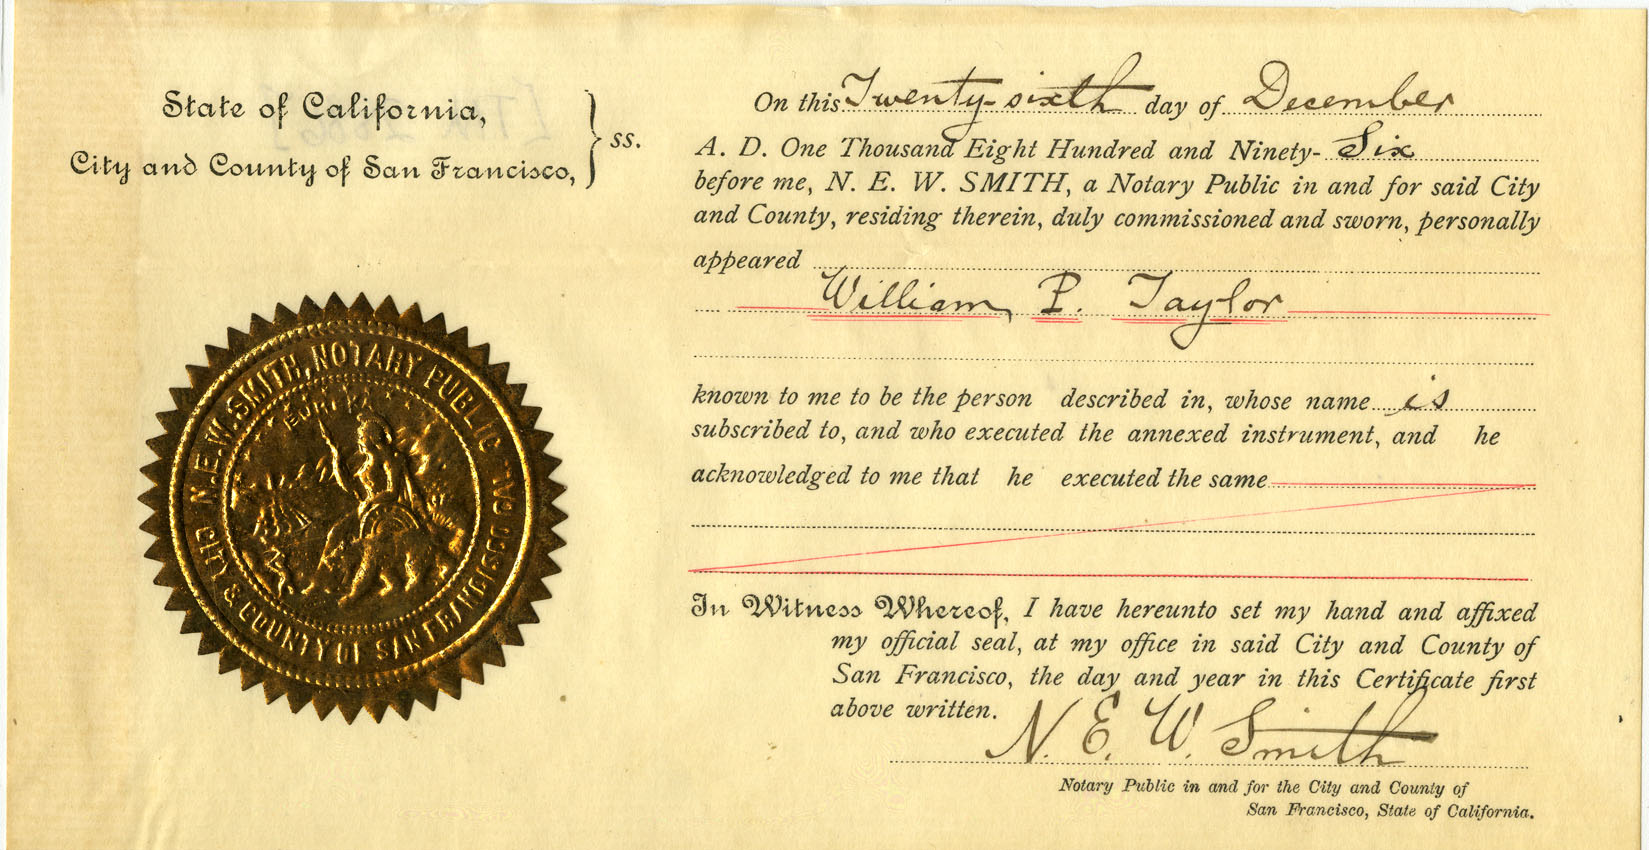 State of California,
City and County of San Francisco,
ss.
On this Twenty-sixth day of December
A. D. One Thousand Eight Hundred and Ninety- Six
before me, N. E. W. SMITH, a Notary Public in and for said City
and County, residing therein, duly commissioned and sworn, personally
appeared
William P. Taylor
known to me to be the person described in, whose name is
subscribed to, and who executed the annexed instrument, and he
acknowledged to me that he executed the same
In Witness Whereof, I have hereunto set my hand and affixed
my official seal, at my office in said City and County of
San Francisco, the day and year in this Certificate first
above written.
N. E. W. Smith
Notary Public in and for the City and County of
San Francisco, State of California.
N.E.W. SMITH, NOTARY PUBLIC
CITY & COUNTY OF SAN FRANCISCO
EUREKA